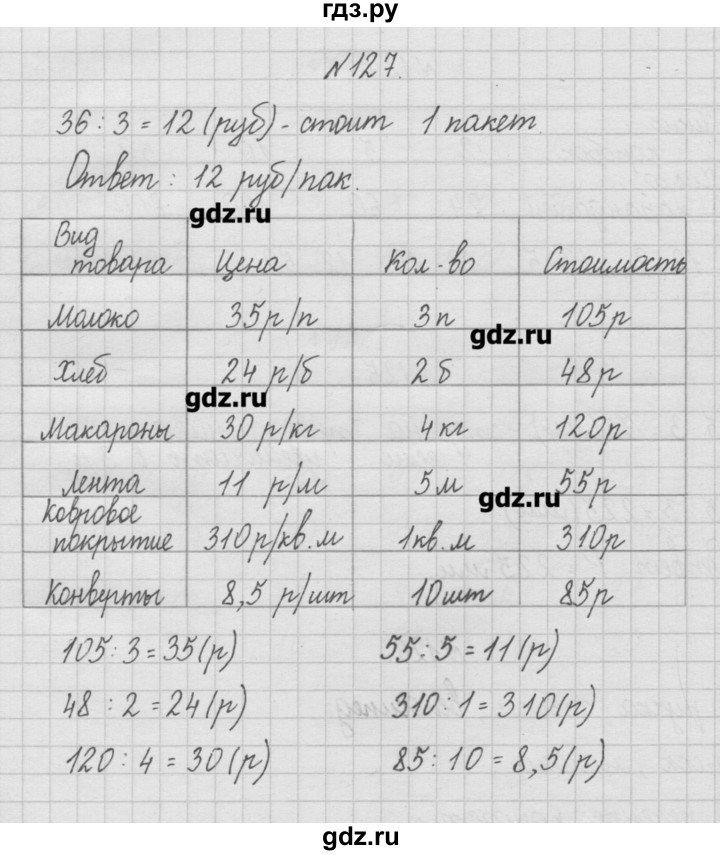 гдз.ру
№127.
36 : 3 = 12 (руб) - стоит 1 пакет.
Ответ: 12 руб/пак.
gdz.ru
Вид товара Цена Кол-во Стоимость
Молоко 35р/п 3п 105р
gdz.ru
Хлеб 24 р/б 2б 48р
gdz.ru
Макароны 30 р/кг 4кг 120р
Лента 11 р/м 5м 55р
gdz.ru
Ковровое покрытие 310р/кв.м 1кв.м 310р
Конверты 8,5 р/шт 10шт 85р
105 : 3 = 35(р) 55 : 5 = 11(р)
48 : 2 = 24(р) 310 : 1 = 310(р)
120 : 4 = 30(р) 85 : 10 = 8,5(р)
gdz.ru